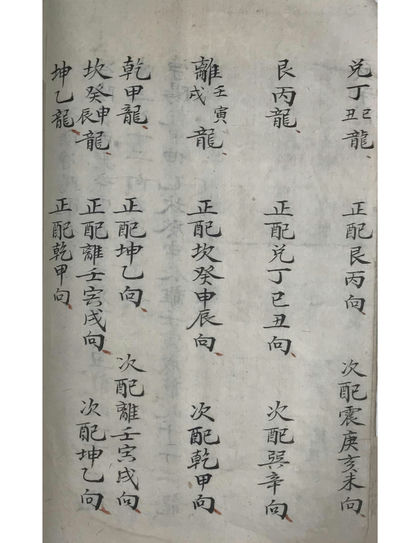 兌丁巳丑龍 正配艮丙向 次配震庚亥未向
艮丙龍 正配兌丁巳丑向 次配巽辛向
離壬寅戌龍 正配坎癸申辰向 次配乾甲向
乾甲龍 正配坤乙向 次配離壬寅戌向
坎癸申辰龍 正配離壬寅戌向 次配坤乙向
坤乙龍 正配乾甲向